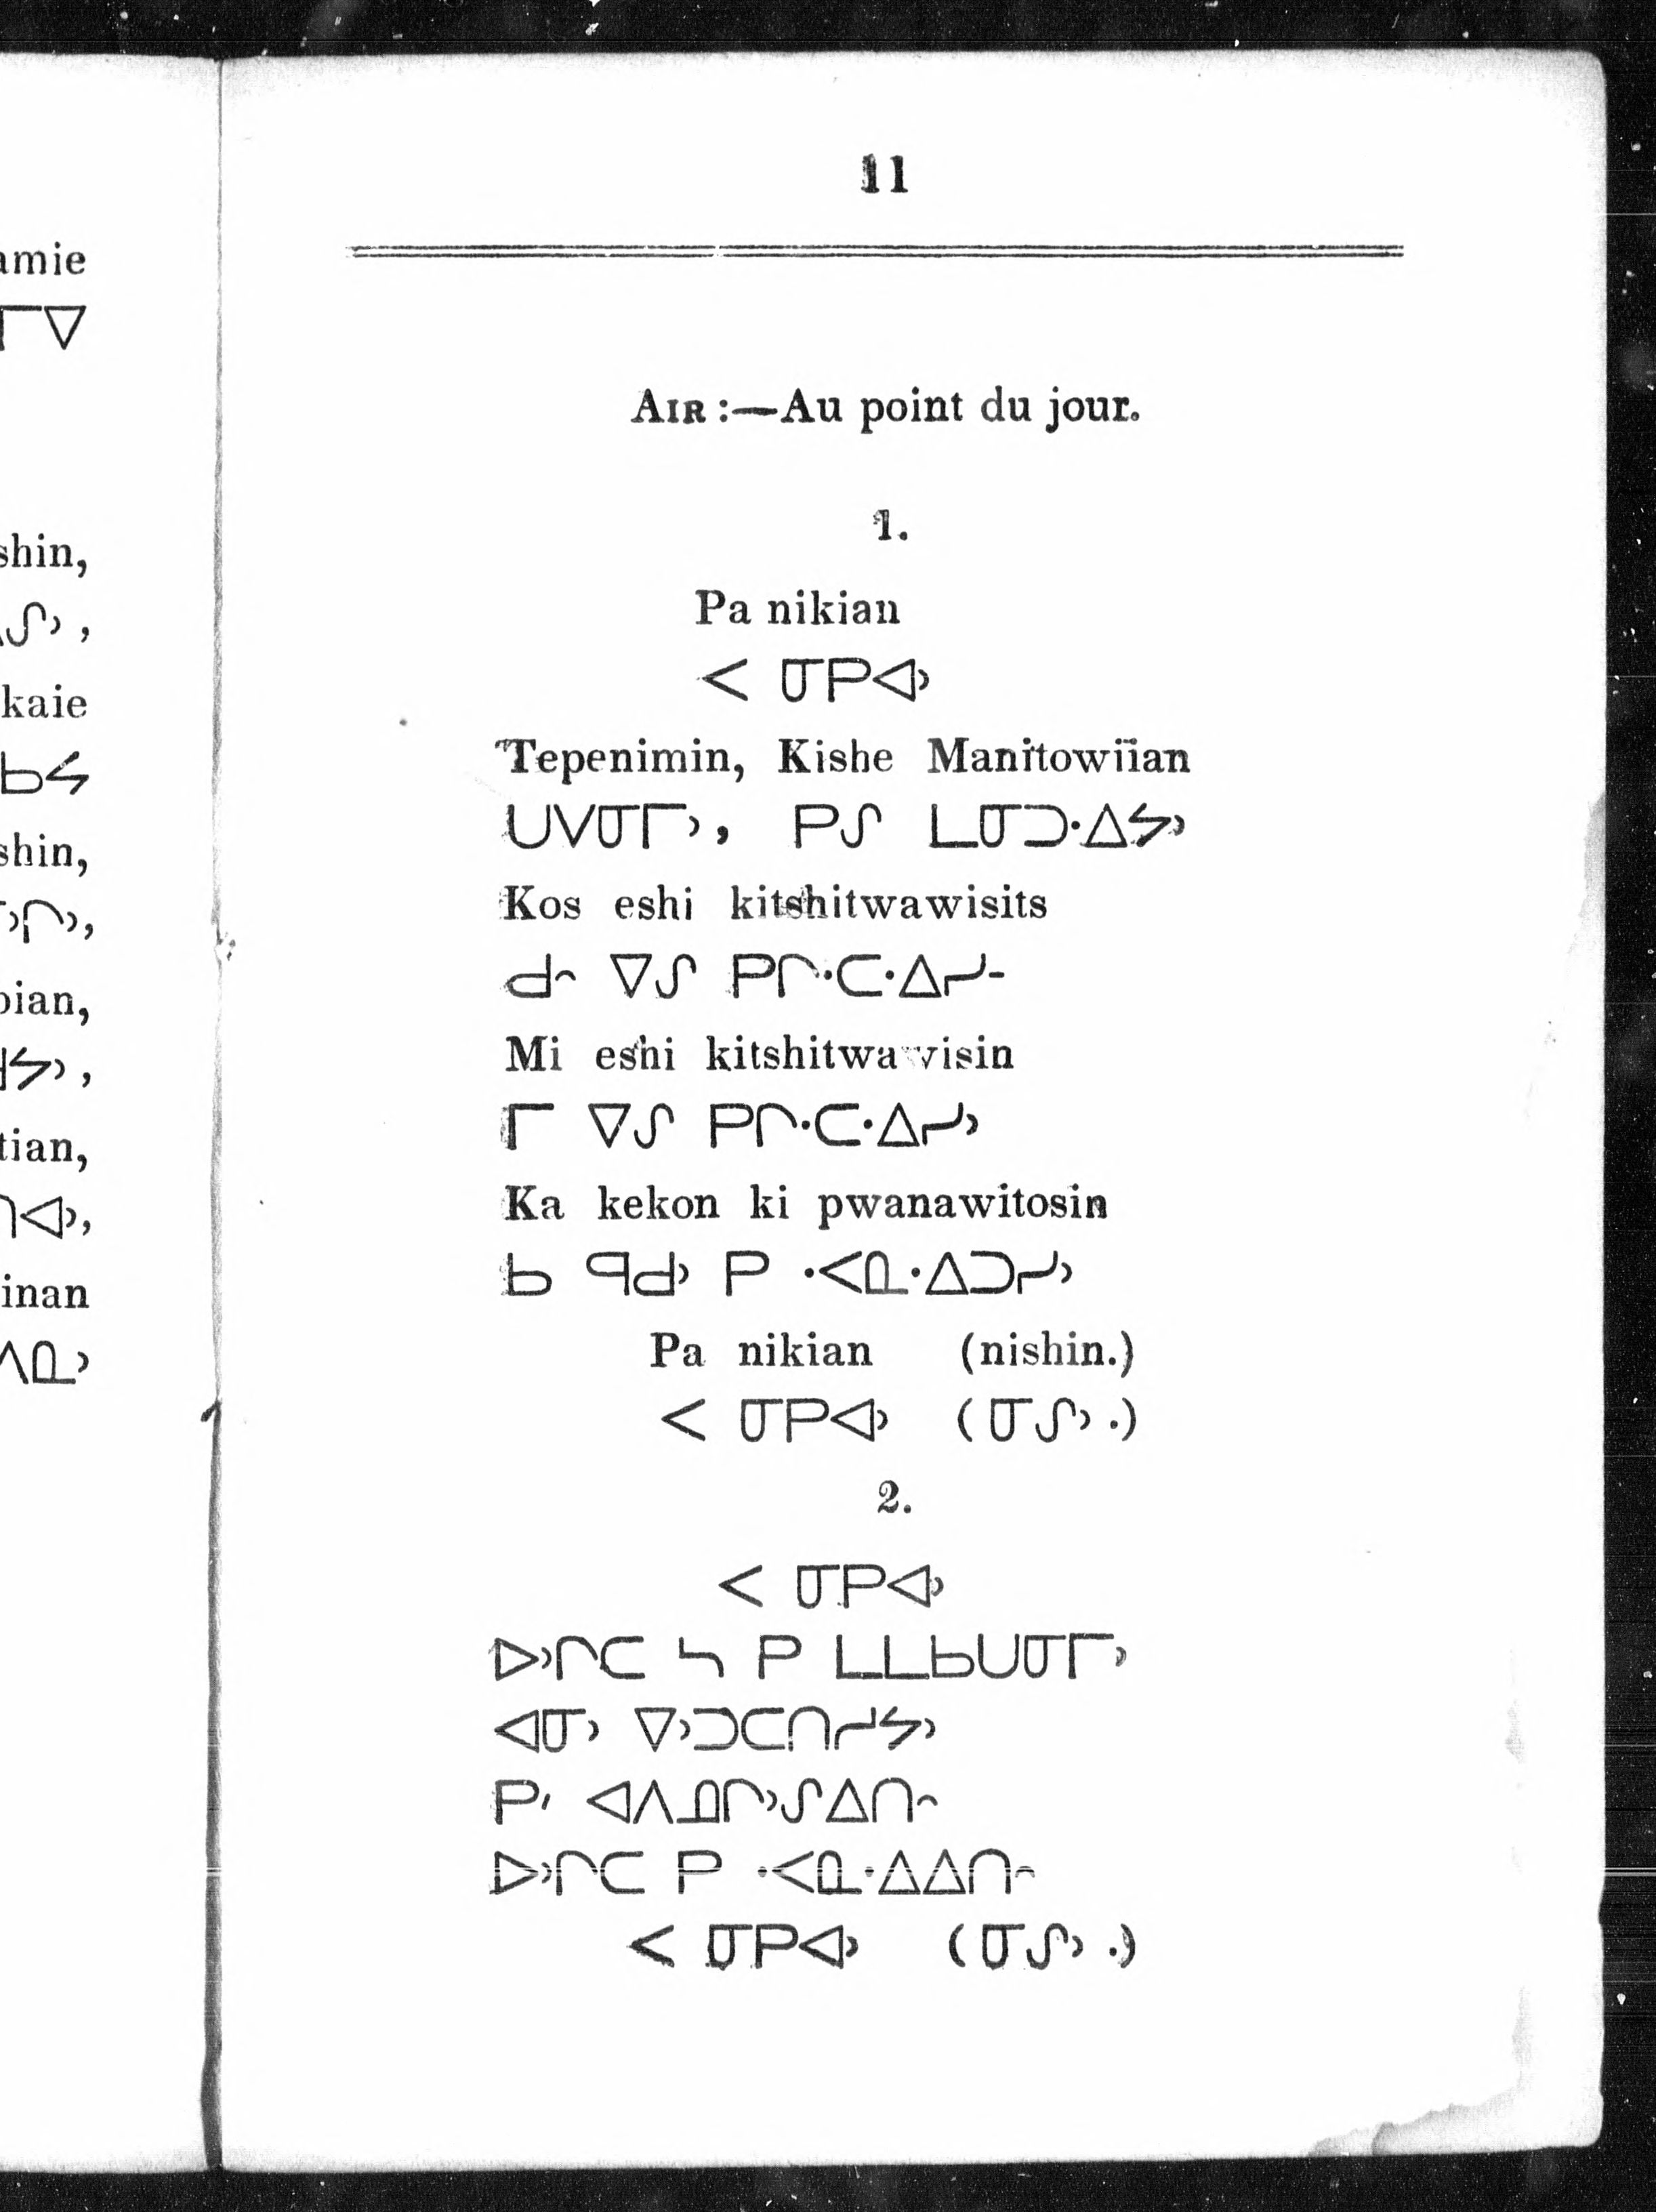 11
AIR :—Au point du jour.
1.
Pa nikian
ᐸ ᓂᑭᐊᐣ
Tepenimin, Kishe Manitowiian
ᑌᐯᓂᒥᐣ, ᑭᔑ ᒪᓂᑐᐧᐃᔭᐣ
Kos eshi kitshitwawisits
ᑯᐢ ᐁᔑ ᑭᒋᐧᑕᐧᐃᓯᐨ
Mi eshi kitshitwawisin
ᒥ ᐁᔑ ᑭᒋᐧᑕᐧᐃᓯᐣ
Ka kekon ki pwanawitosin
ᑲ ᑫᑯᐣ ᑭ ᐧᐸᓇᐧᐃᑐᓯᐣ
Pa nikian (nishin.)
ᐸ ᓂᑭᐊᐣ (ᓂᔑᐣ.)
2.
ᐸ ᓂᑭᐊᐣ
ᐅᐣᒋᑕ ᓴ ᑭ ᒪᒪᑲᑌᓂᒥᐣ
ᐊᓂᐣ ᐁᐣᑐᑕᑎᓯᔭᐣ
ᑭᐟ ᐊᐱᓄᒋᐣᔑᐃᑎᐢ
ᐅᐣᒋᑕ ᑭ ᐧᐸᓇᐧᐃᐃᑎᐢ
ᐸ ᓂᑭᐊᐣ (ᓂᔑᐣ.)